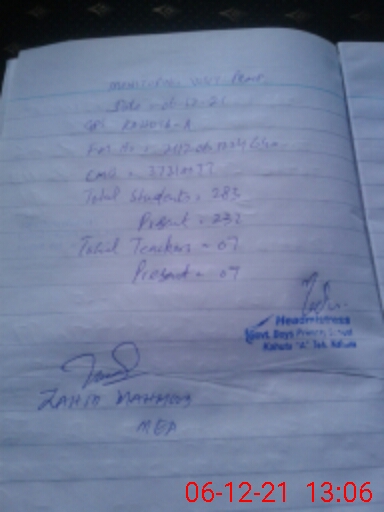 Monitoring Visit Perf.
Date = 06-12-21
GPS Kahuta-A
EMIS = 37310077
Total Students = 283
Present = 232
Total Teachers = 07
Present = 07
Headmistress
Govt. Boys Primary School
Kahuta "A" Teh. Kahuta
ZAHID MAHMOOD
MEA
06-12-21 13:06